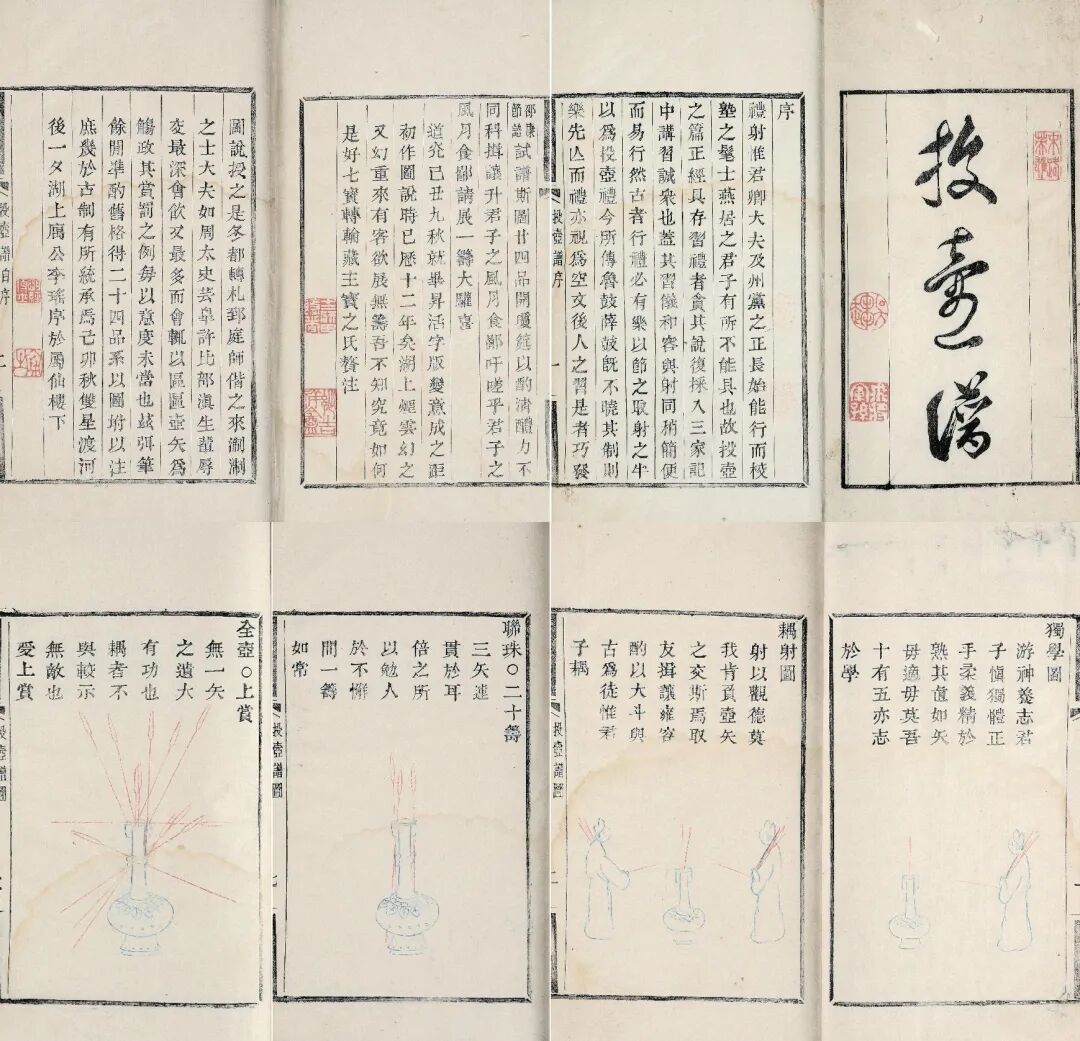 投壺譜
序
禮射惟君卿大夫及州黨之正長始能行而校
塾之髦士燕居之君子有所不能具也故投壺
之篇正經具存習禮者貪其說復採入三家記
中講習誠衆也蓋其習儀和容與射同稍簡便
而易行然古者行禮必有樂以節之取射之半
以爲投壺禮今所傳魯鼓薛鼓旣不曉其制則
樂先亾而禮亦視爲空文後人之習是者巧發
投壺譜序
試譜斯圖廿四品開慶筵以酌淸醴力不
同科揖讓升君子之風月食鄙吁嗟乎君子之
風月食鄙請展一籌大驩喜
道光己丑九秋就畢昇活字版變意成之距
初作圖說時已歷十二年矣湖上煙雲幻之
又幻重來有客欲展無籌吾不知究竟如何
是好七寶轉輪藏主寶之氏贅注
圖說授之是冬都轉札郅庭師偕之來淛淛
之士大夫如周太史芸皐許比部滇生輩辱
交最深會飮又最多而會輒以區區壺矢爲
觴政其賞罰之例毎以意度未當也兹弭筆
餘閒準酌舊格得二十四品系以圖坿以注
庶幾於古制有所統承焉己卯秋雙星渡河
後一夕湖上寓公李瑤序於屬仙樓下
投壺譜自序
獨學圖
游神養志君
子愼獨體正
手柔義精於
熟其道如矢
毋適毋莫吾
十有五亦志
於學
耦射圖
射以觀德莫
我肯貢壺矢
之交斯焉取
友揖讓雍容
酌以大斗與
古爲徒惟君
子耦
投壺譜圖
聯珠○二十籌
三矢進
貫於耳
倍之所
以勉人
於不懈
間一籌
如常
全壺○上賞
無一矢
之遺大
有功也
耦者不
與較示
無敵也
受上賞
投壺譜圖